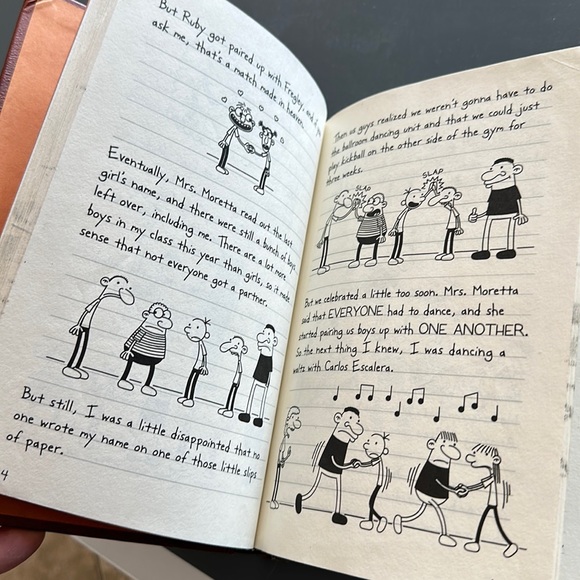 But Ruby got paired up with Fregley, and if you
ask me, that's a match made in heaven.
Eventually, Mrs. Moretta read out the last
girl's name, and there were still a bunch of boys
left over, including me. There are a lot more
boys in my class this year than girls, so it made
sense that not everyone got a partner.
But still, I was a little disappointed that no
one wrote my name on one of those little slips
of paper.
4
Then us guys realized we weren't gonna have to do
the ballroom dancing unit and that we could just
play kickball on the other side of the gym for
three weeks.
SLAP
SLAP
But we celebrated a little too soon. Mrs. Moretta
said that EVERYONE had to dance, and she
started pairing us boys up with ONE ANOTHER.
So the next thing I knew, I was dancing a
waltz with Carlos Escalera.